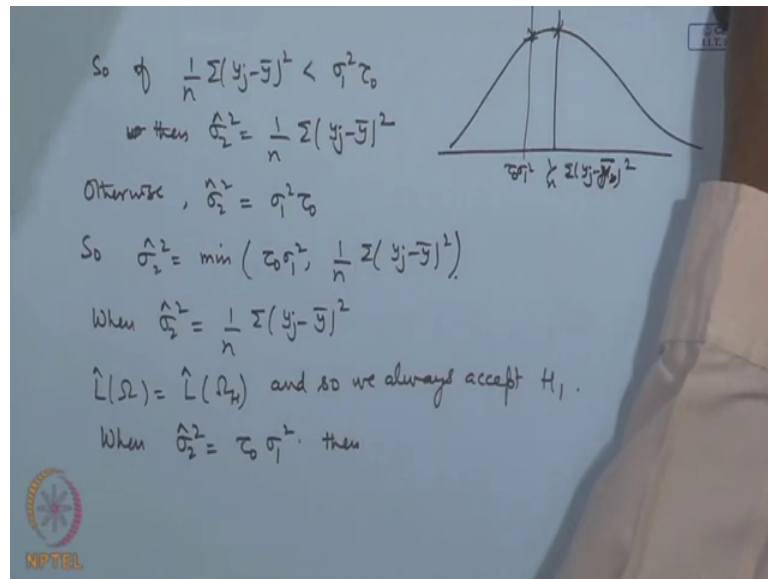 So if 1/n Σ(yj-ȳ)² < σ₁² τ₀
then σ̂₂² = 1/n Σ(yj-ȳ)²
Otherwise, σ̂₂² = σ₁² τ₀
So σ̂₂² = min(τ₀σ₁², 1/n Σ(yj-ȳ)²)
When σ̂₂² = 1/n Σ(yj-ȳ)²
L̂(Ω) = L̂(Ω_H) and so we always accept H₁.
When σ̂₂² = τ₀ σ₁². then
τ₀σ₁² 1/n Σ(yj-)²
I.I.T.
NPTEL